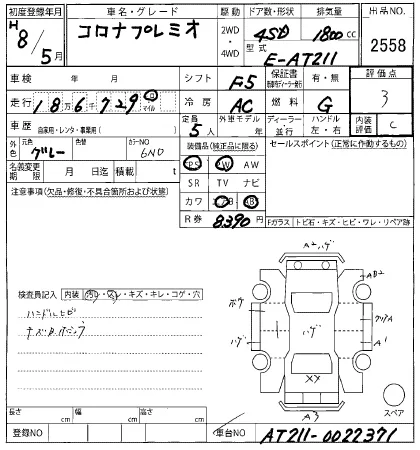 初度登録年月 車名・グレード 駆動 ドア数・形状 排気量 出品NO.
H 8/5月 コロナプレミオ 2WD・4WD 4SD 1800cc 2558
型式 E-AT211
車検 年 月 シフト F5 保証書 有・無 評価点
走行 18万6千729 マイル 冷房 AC 燃料 G 3
車歴 自家用・レンタ・事業用( ) 定員 5人 外車モデル 年 ディーラー・並行 ハンドル 左・右 内装評価 C
外色 元色 グレー 色替 カラーNO 6N0 装備品(純正品に限る) セールスポイント(正常に作動するもの)
名義変更期限 月 日迄 積載 t PS PW AW
SR TV ナビ
注意事項(欠品・修復・不具合箇所および状態) カワ エアB
R券 8390円 Fガラス トビ石・キズ・ヒビ・ワレ・リペア跡
A2 ハゲ
AB2
検査員記入 内装 ・キズ・キレ・コゲ・穴 ボケ
ハンドル
ハゲ ハゲ A1
XX
スペア
A3
長さ cm 幅 cm 高さ cm
登録NO 車台NO AT211-0022371